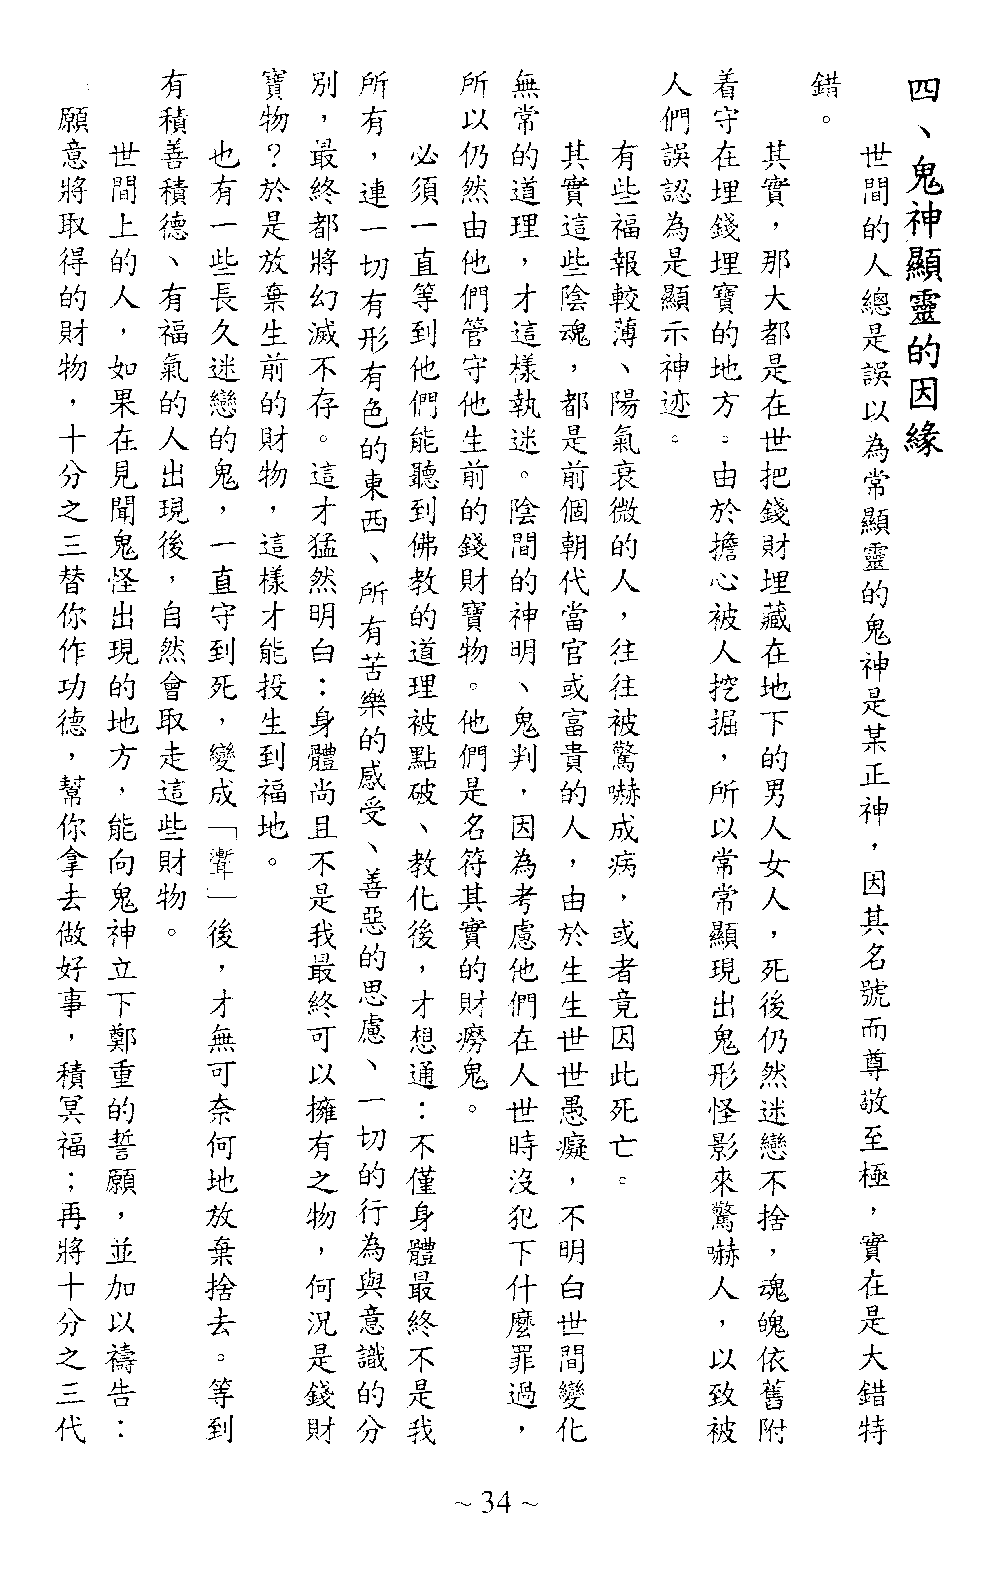 四、鬼神顯靈的因緣
世間的人總是誤以為常顯靈的鬼神是某正神，因其名號而尊敬至極，實在是大錯特
錯。
其實，那大都是在世把錢財埋藏在地下的男人女人，死後仍然迷戀不捨，魂魄依舊附
着守在埋錢埋寶的地方。由於擔心被人挖掘，所以常常顯現出鬼形怪影來驚嚇人，以致被
人們誤認為是顯示神迹。
有些福報較薄、陽氣衰微的人，往往被驚嚇成病，或者竟因此死亡。
其實這些陰魂，都是前個朝代當官或富貴的人，由於生生世世愚癡，不明白世間變化
無常的道理，才這樣執迷。陰間的神明、鬼判，因為考慮他們在人世時沒犯下什麼罪過，
所以仍然由他們管守他生前的錢財寶物。他們是名符其實的財癆鬼。
必須一直等到他們能聽到佛教的道理被點破、教化後，才想通：不僅身體最終不是我
所有，連一切有形有色的東西、所有苦樂的感受、善惡的思慮、一切的行為與意識的分
別，最終都將幻滅不存。這才猛然明白：身體尚且不是我最終可以擁有之物，何況是錢財
寶物？於是放棄生前的財物，這樣才能投生到福地。
也有一些長久迷戀的鬼，一直守到死，變成「聻」後，才無可奈何地放棄捨去。等到
有積善積德、有福氣的人出現後，自然會取走這些財物。
世間上的人，如果在見聞鬼怪出現的地方，能向鬼神立下鄭重的誓願，並加以禱告：
願意將取得的財物，十分之三替你作功德，幫你拿去做好事，積冥福；再將十分之三代
~ 34 ~